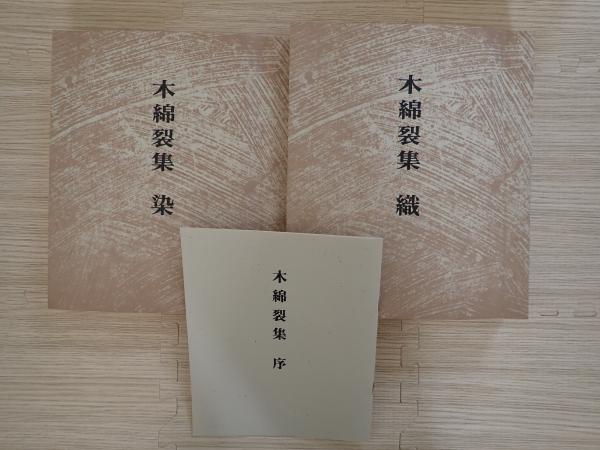 木綿裂集 染
木綿裂集 織
木綿裂集 序